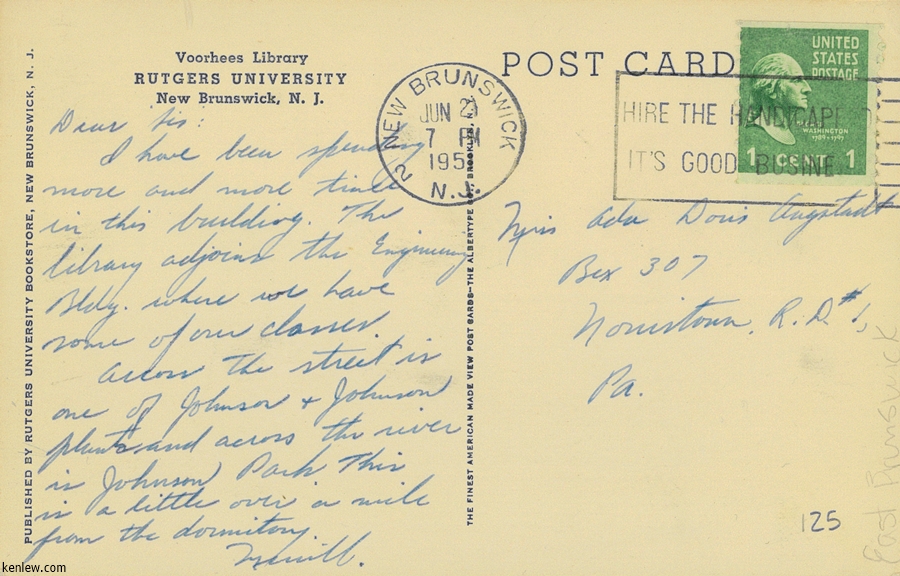 PUBLISHED BY RUTGERS UNIVERSITY BOOKSTORE, NEW BRUNSWICK, N. J.
Voorhees Library
RUTGERS UNIVERSITY
New Brunswick, N. J.
Dear Sis:
I have been spending
more and more time
in this building. The
library adjoins the Engineering
Bldg. where we have
some of our classes.
Across the street is
one of Johnson + Johnson
plants and across the river
is Johnson Park This
is a little over a mile
from the dormitory
Merrill.
THE FINEST AMERICAN MADE VIEW POST CARDS—THE ALBERTYPE BROOKLYN, N.Y.
POST CARD
NEW BRUNSWICK
JUN
7 PM
195
2 N.J.
HIRE THE
IT'S GOOD
UNITED
STATES
POSTAGE
WASHINGTON
1789-1797
1 CENT 1
Miss Ada Doris Angstadt
Box 307
Norristown, R.D. #1,
Pa.
125
East Brunswick
kenlew.com